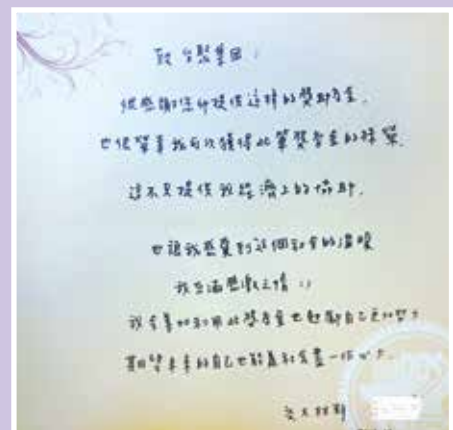 致 台聚集團：
很感謝您們提供這樣的獎助學金，
也很榮幸我有次獲得此筆獎學金的殊榮，
這不只提供我經濟上的協助，
也讓我感覺到這個社會的溫暖
我充滿感激之情 :)
我會善加利用此獎學金也勉勵自己更加努力
期望未來的自己也能為社會盡一份心力。
交大材料